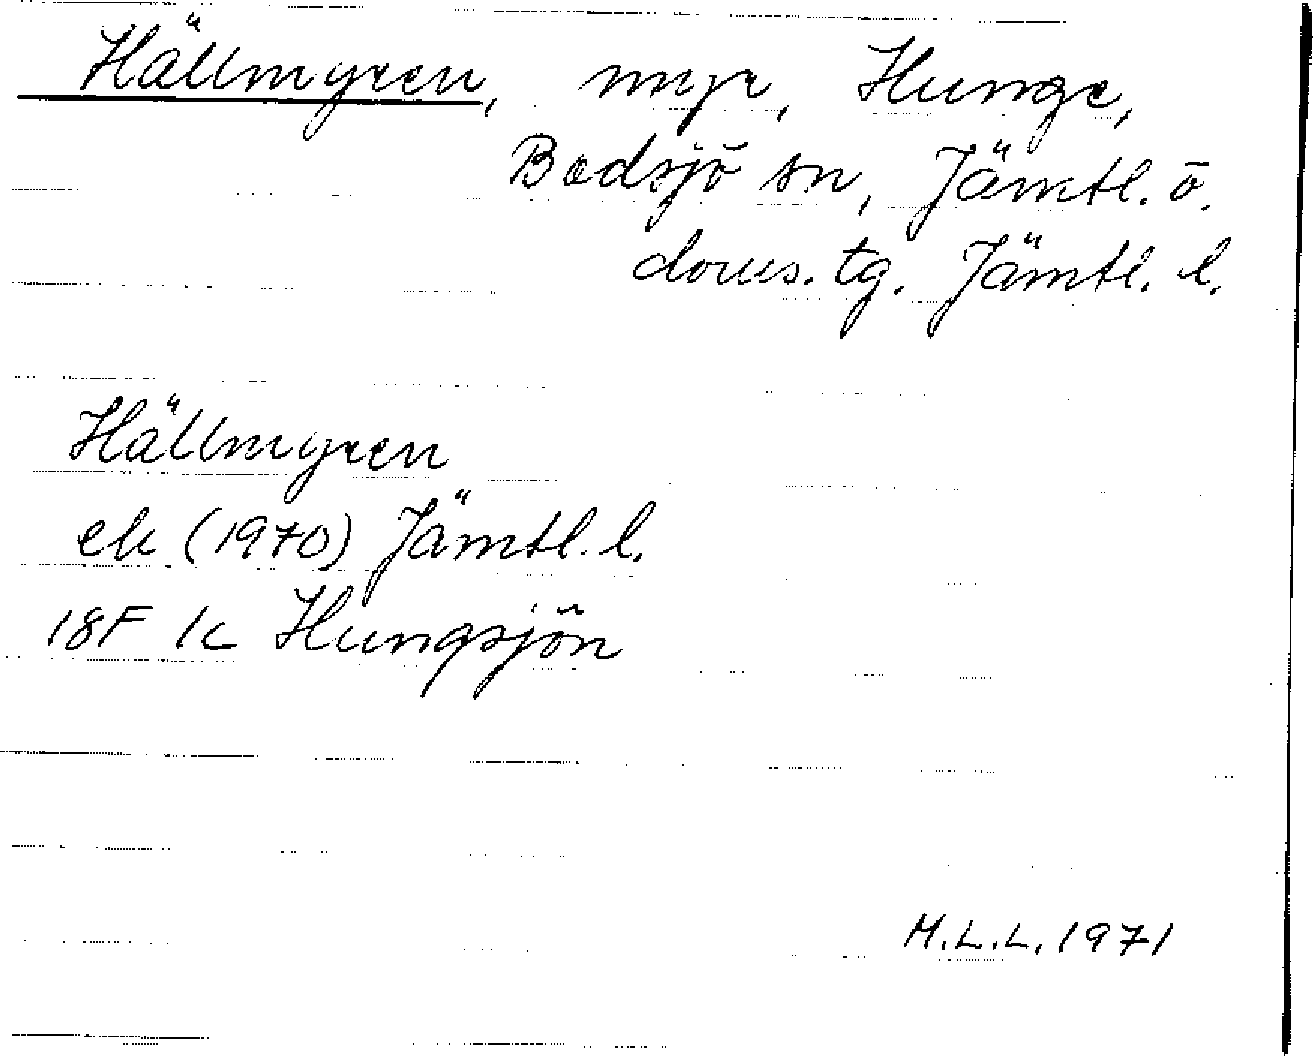 Hällmyren, myr, Hunge,
Bodsjö sn, Jämtl. ö.
doms.tg. Jämtl. l.
Hällmyren
ek (1970) Jämtl. l.
18F 1c Hungsjön
M.L.L. 1971